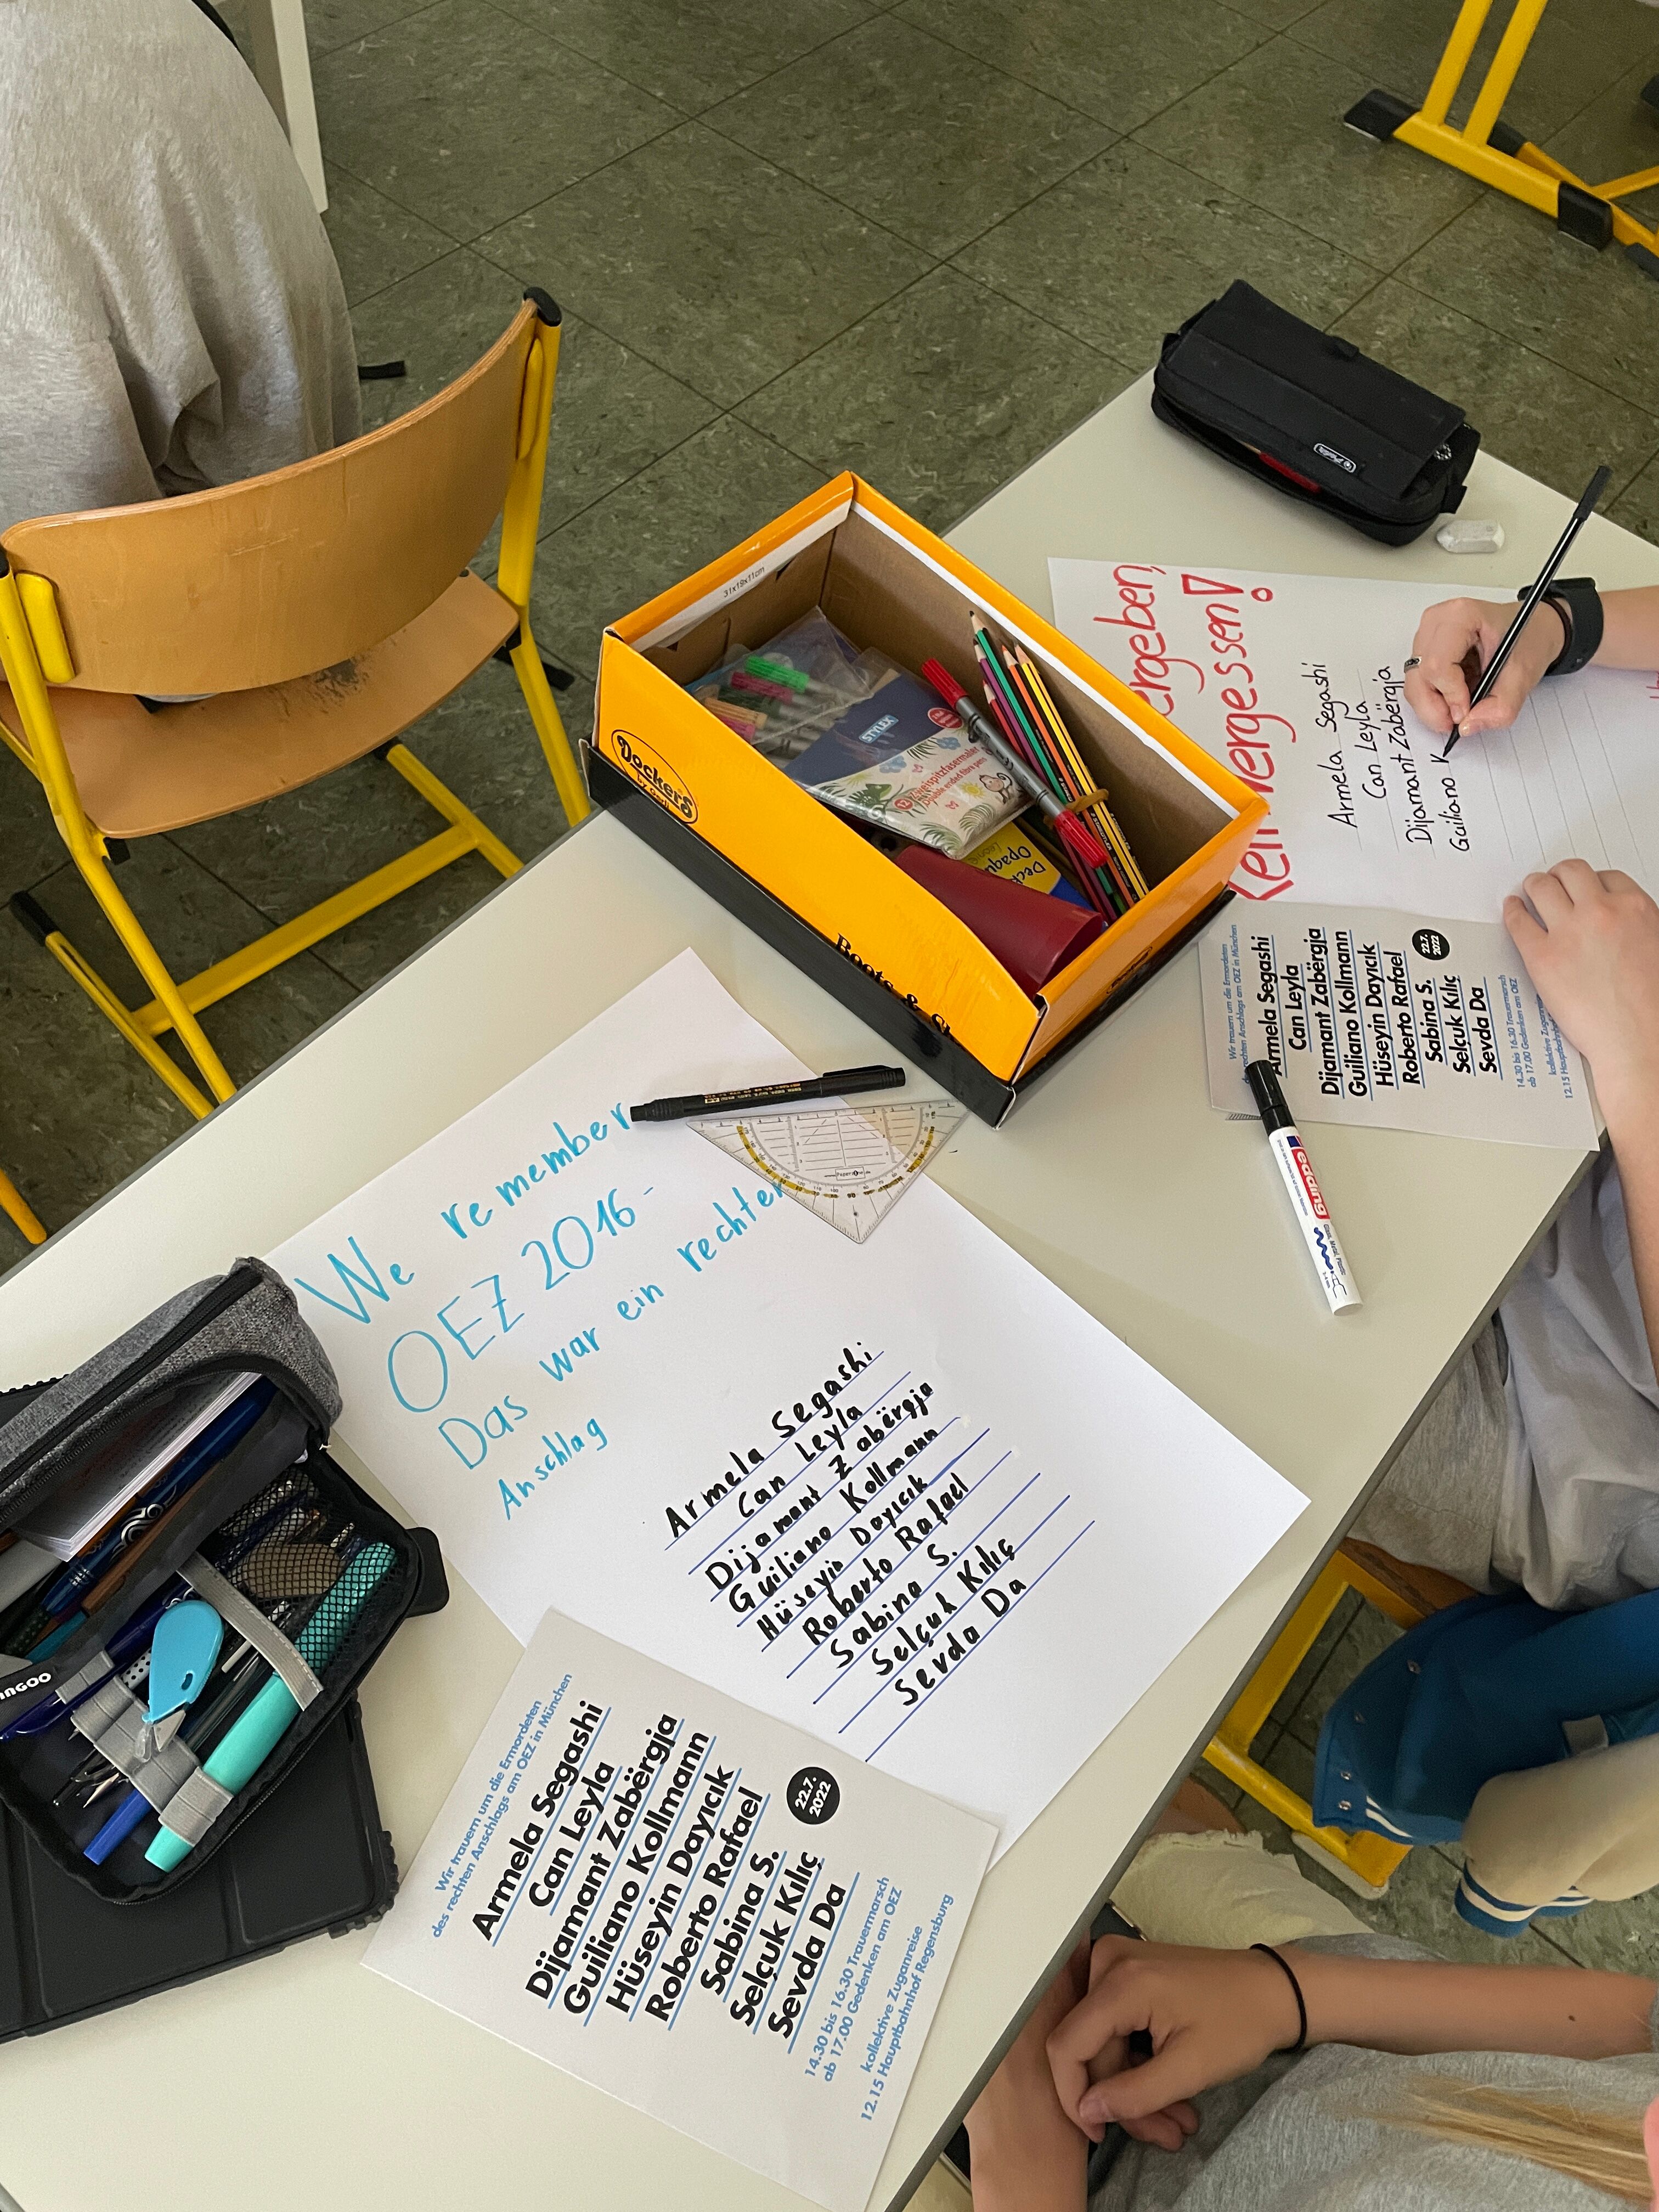 We remember
OEZ 2016-
Das war ein rechter
Anschlag
Armela Segashi
Can Leyla
Dijamant Zabërgja
Guiliano Kollmann
Hüseyin Dayıcık
Roberto Rafael
Sabina S.
Selçuk Kılıç
Sevda Da
Wir trauern um die Ermordeten
des rechten Anschlags am OEZ in München
Armela Segashi
Can Leyla
Dijamant Zabërgja
Guiliano Kollmann
Hüseyin Dayıcık
Roberto Rafael
Sabina S.
Selçuk Kılıç
Sevda Da
22.7.
2022
14.30 bis 16.30 Trauermarsch
ab 17.00 Gedenken am OEZ
kollektive Zuganreise
12.15 Hauptbahnhof Regensburg
ergeben,
Kein vergessen!
Armela Segashi
Can Leyla
Dijamant Zabërgja
Guiliano K
Wir trauern um die Ermordeten
des rechten Anschlags am OEZ in München
Armela Segashi
Can Leyla
Dijamant Zabërgja
Guiliano Kollmann
Hüseyin Dayıcık
Roberto Rafael
Sabina S.
Selcuk Kılıc
Sevda Da
22.7.
2022
14.30 bis 16.30 Trauermarsch
ab 17.00 Gedenken am OEZ
kollektive Zuganreise
12.15 Hauptbahnhof
Dockers
by Gerli
31x19x11cm
STYLEX
Zweispitzfasermaler
Double ended fibre pens
edding